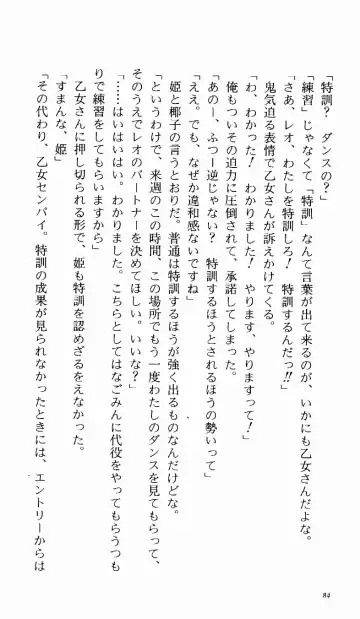 「特訓？　ダンスの？」
「練習」じゃなくて「特訓」なんて言葉が出て来るのが、いかにも乙女さんだよな。
「さあ、レオ、わたしを特訓しろ！　特訓するんだっ!!」
鬼気迫る表情で乙女さんが訴えかけてくる。
「わ、わかった！　わかりました！　やります、やりますって！」
俺もついその迫力に圧倒されて、承諾してしまった。
「あのー、ふつー逆じゃない？　特訓するほうとされるほうの勢いって」
「ええ。でも、なぜか違和感ないですね」
姫と椰子の言うとおりだ。普通は特訓するほうが強く出るものなんだけどな。
「というわけで、来週のこの時間、この場所でもう一度わたしのダンスを見てもらって、
そのうえでレオのパートナーを決めてほしい。いいな？」
「……はいはいはい。わかりました。こちらとしてはなごみんに代役をやってもらうつも
りで練習をしてもらいますから」
乙女さんに押し切られる形で、姫も特訓を認めざるをえなかった。
「すまんな、姫」
「その代わり、乙女センパイ。特訓の成果が見られなかったときには、エントリーからは
84